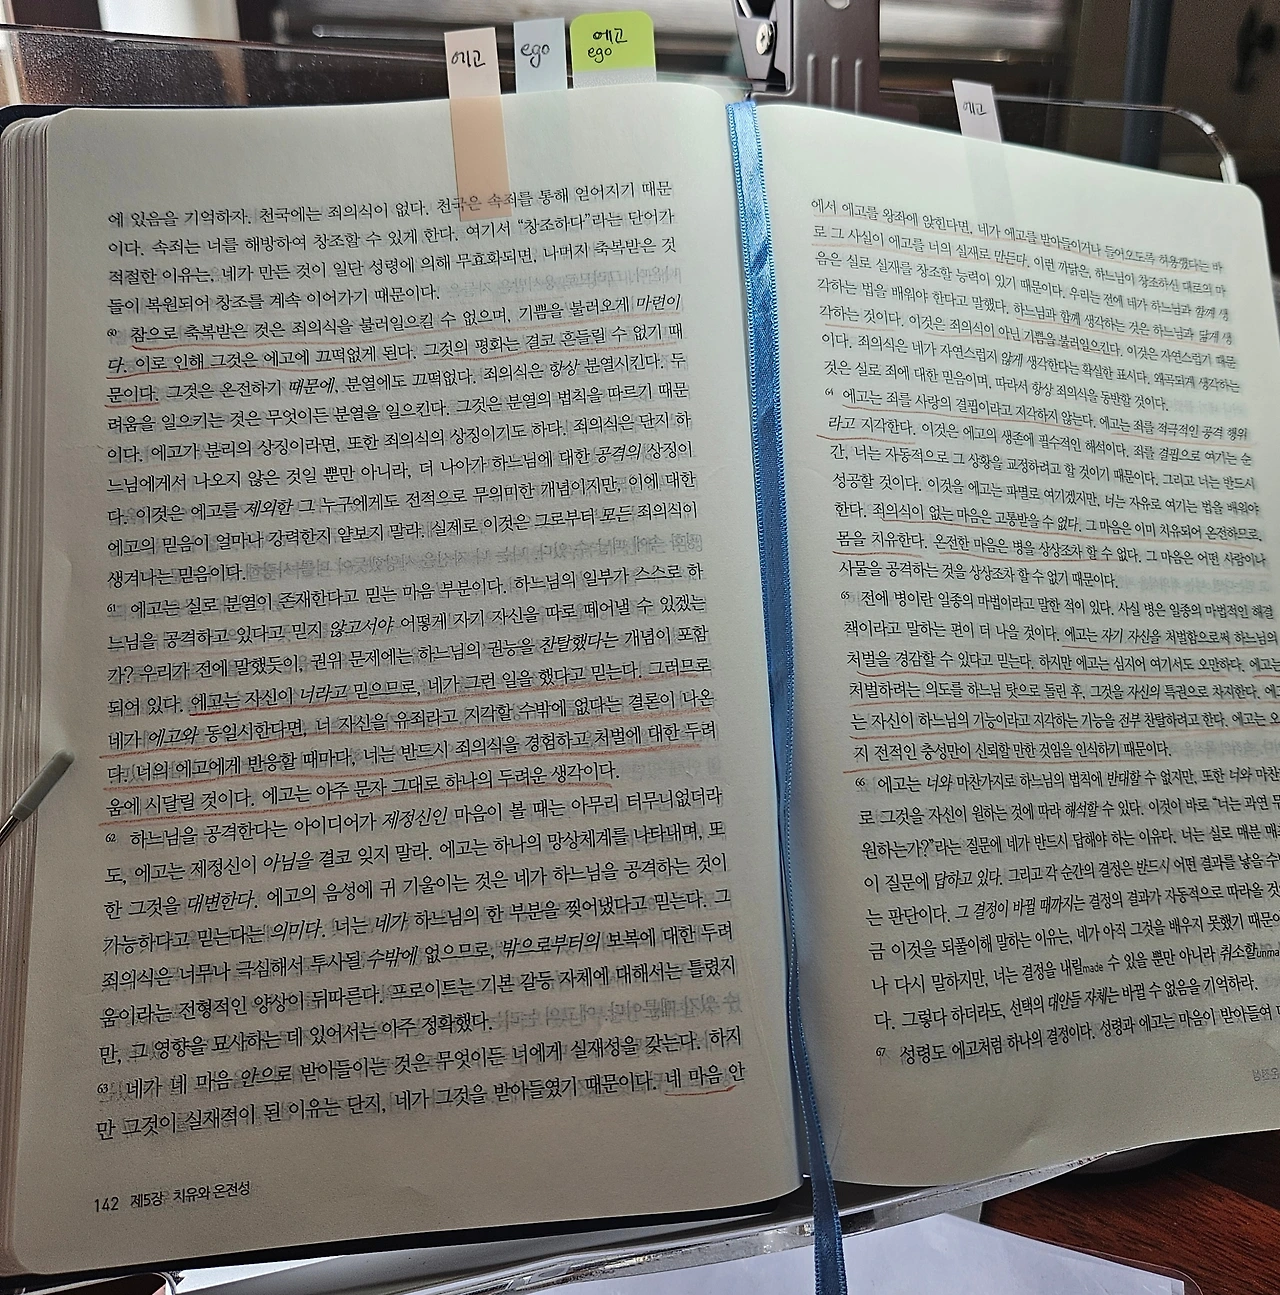 에고
ego
에고
ego
에고
에 있음을 기억하자. 천국에는 죄의식이 없다. 천국은 속죄를 통해 얻어지기 때문
이다. 속죄는 너를 해방하여 창조할 수 있게 한다. 여기서 “창조하다”라는 단어가
적절한 이유는, 네가 만든 것이 일단 성령에 의해 무효화되면, 나머지 축복받은 것
들이 복원되어 창조를 계속 이어가기 때문이다.
60 참으로 축복받은 것은 죄의식을 불러일으킬 수 없으며, 기쁨을 불러오게 마련이
다. 이로 인해 그것은 에고에 끄떡없게 된다. 그것의 평화는 결코 흔들릴 수 없기 때
문이다. 그것은 온전하기 때문에, 분열에도 끄떡없다. 죄의식은 항상 분열시킨다. 두
려움을 일으키는 것은 무엇이든 분열을 일으킨다. 그것은 분열의 법칙을 따르기 때문
이다. 에고가 분리의 상징이라면, 또한 죄의식의 상징이기도 하다. 죄의식은 단지 하
느님에게서 나오지 않은 것일 뿐만 아니라, 더 나아가 하느님에 대한 공격의 상징이
다. 이것은 에고를 제외한 그 누구에게도 전적으로 무의미한 개념이지만, 이에 대한
에고의 믿음이 얼마나 강력한지 얕보지 말라. 실제로 이것은 그로부터 모든 죄의식이
생겨나는 믿음이다.
61 에고는 실로 분열이 존재한다고 믿는 마음 부분이다. 하느님의 일부가 스스로 하
느님을 공격하고 있다고 믿지 않고서야 어떻게 자기 자신을 따로 떼어낼 수 있겠는
가? 우리가 전에 말했듯이, 권위 문제에는 하느님의 권능을 찬탈했다는 개념이 포함
되어 있다. 에고는 자신이 너라고 믿으므로, 네가 그런 일을 했다고 믿는다. 그러므로
네가 에고와 동일시한다면, 너 자신을 유죄라고 지각할 수밖에 없다는 결론이 나온
다. 너의 에고에게 반응할 때마다, 너는 반드시 죄의식을 경험하고 처벌에 대한 두려
움에 시달릴 것이다. 에고는 아주 문자 그대로 하나의 두려운 생각이다.
62 하느님을 공격한다는 아이디어가 제정신인 마음이 볼 때는 아무리 터무니없더라
도, 에고는 제정신이 아님을 결코 잊지 말라. 에고는 하나의 망상체계를 나타내며, 또
한 그것을 대변한다. 에고의 음성에 귀 기울이는 것은 네가 하느님을 공격하는 것이
가능하다고 믿는다는 의미다. 너는 네가 하느님의 한 부분을 찢어냈다고 믿는다. 그
죄의식은 너무나 극심해서 투사될 수밖에 없으므로, 밖으로부터의 보복에 대한 두려
움이라는 전형적인 양상이 뒤따른다. 프로이트는 기본 갈등 자체에 대해서는 틀렸지
만, 그 영향을 묘사하는 데 있어서는 아주 정확했다.
63 네가 네 마음 안으로 받아들이는 것은 무엇이든 너에게 실재성을 갖는다. 하지
만 그것이 실재적이 된 이유는 단지, 네가 그것을 받아들였기 때문이다. 네 마음 안
142 제5장 치유와 온전성
에서 에고를 왕좌에 앉힌다면, 네가 에고를 받아들이거나 들어오도록 허용했다는 바
로 그 사실이 에고를 너의 실재로 만든다. 이런 까닭은, 하느님이 창조하신 대로의 마
음은 실로 실재를 창조할 능력이 있기 때문이다. 우리는 전에 네가 하느님과 함께 생
각하는 법을 배워야 한다고 말했다. 하느님과 함께 생각하는 것은 하느님과 닮게 생
각하는 것이다. 이것은 죄의식이 아닌 기쁨을 불러일으킨다. 이것은 자연스럽기 때문
이다. 죄의식은 네가 자연스럽지 않게 생각한다는 확실한 표시다. 왜곡되게 생각하는
것은 실로 죄에 대한 믿음이며, 따라서 항상 죄의식을 동반할 것이다.
64 에고는 죄를 사랑의 결핍이라고 지각하지 않는다. 에고는 죄를 적극적인 공격 행위
라고 지각한다. 이것은 에고의 생존에 필수적인 해석이다. 죄를 결핍으로 여기는 순
간, 너는 자동적으로 그 상황을 교정하려고 할 것이기 때문이다. 그리고 너는 반드시
성공할 것이다. 이것을 에고는 파멸로 여기겠지만, 너는 자유로 여기는 법을 배워야
한다. 죄의식이 없는 마음은 고통받을 수 없다. 그 마음은 이미 치유되어 온전하므로,
몸을 치유한다. 온전한 마음은 병을 상상조차 할 수 없다. 그 마음은 어떤 사람이나
사물을 공격하는 것을 상상조차 할 수 없기 때문이다.
65 전에 병이란 일종의 마법이라고 말한 적이 있다. 사실 병은 일종의 마법적인 해결
책이라고 말하는 편이 더 나을 것이다. 에고는 자기 자신을 처벌함으로써 하느님의
처벌을 경감할 수 있다고 믿는다. 하지만 에고는 심지어 여기서도 오만하다. 에고는
처벌하려는 의도를 하느님 탓으로 돌린 후, 그것을 자신의 특권으로 차지한다. 에
는 자신이 하느님의 기능이라고 지각하는 기능을 전부 찬탈하려고 한다. 에고는 오
지 전적인 충성만이 신뢰할 만한 것임을 인식하기 때문이다.
66 에고는 너와 마찬가지로 하느님의 법칙에 반대할 수 없지만, 또한 너와 마찬
로 그것을 자신이 원하는 것에 따라 해석할 수 있다. 이것이 바로 “너는 과연 무
원하는가?”라는 질문에 네가 반드시 답해야 하는 이유다. 너는 실로 매분 매
이 질문에 답하고 있다. 그리고 각 순간의 결정은 반드시 어떤 결과를 낳을 수
는 판단이다. 그 결정이 바뀔 때까지는 결정의 결과가 자동적으로 따라올 것
금 이것을 되풀이해 말하는 이유는, 네가 아직 그것을 배우지 못했기 때문
나 다시 말하지만, 너는 결정을 내릴made 수 있을 뿐만 아니라 취소할unma
다. 그렇다 하더라도, 선택의 대안들 자체는 바뀔 수 없음을 기억하라.
67 성령도 에고처럼 하나의 결정이다. 성령과 에고는 마음이 받아들여